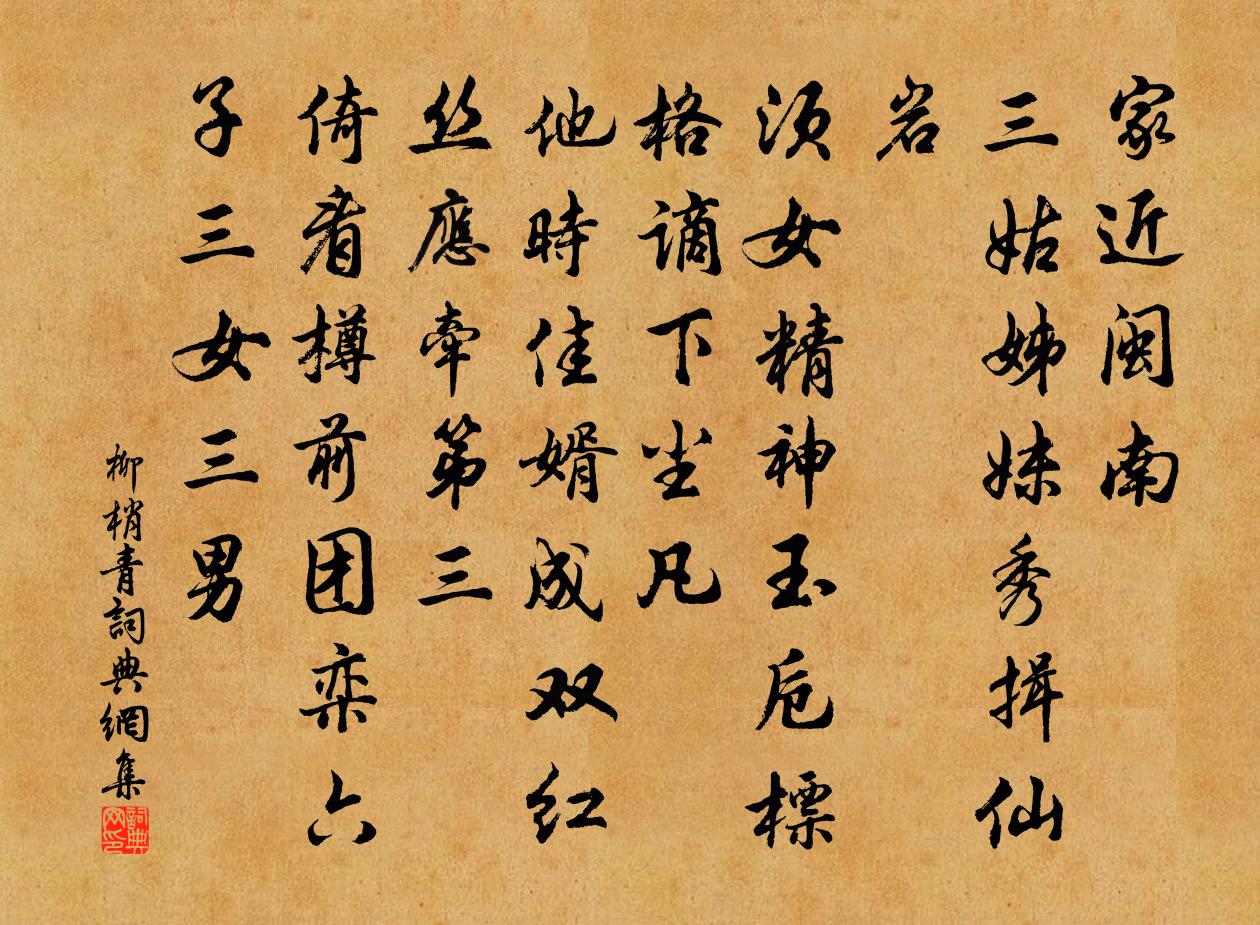 家近闽南
三姑姊妹秀揖仙
岩
须女精神玉卮標
格谪下尘凡
他時佳婿成双红
丝應牵第三
倚看樽前团栾六
子三女三男
柳梢青詞典網集
詞典网印